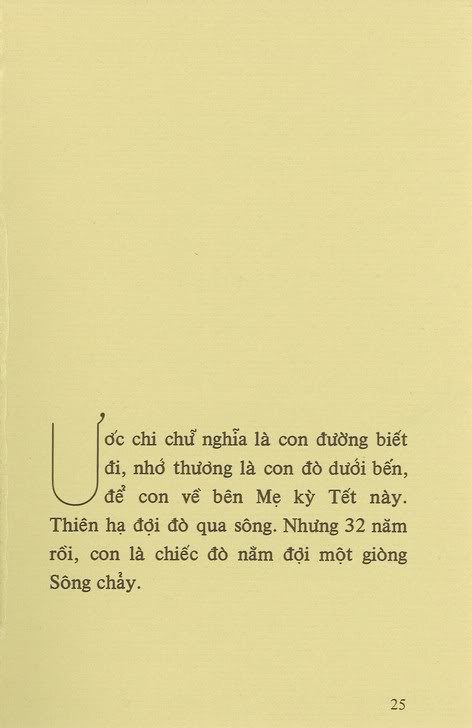 Ước chi chữ nghĩa là con đường biết
đi, nhớ thương là con đò dưới bến,
để con về bên Mẹ kỳ Tết này.
Thiên hạ đợi đò qua sông. Nhưng 32 năm
rồi, con là chiếc đò nằm đợi một giòng
Sông chảy.
25